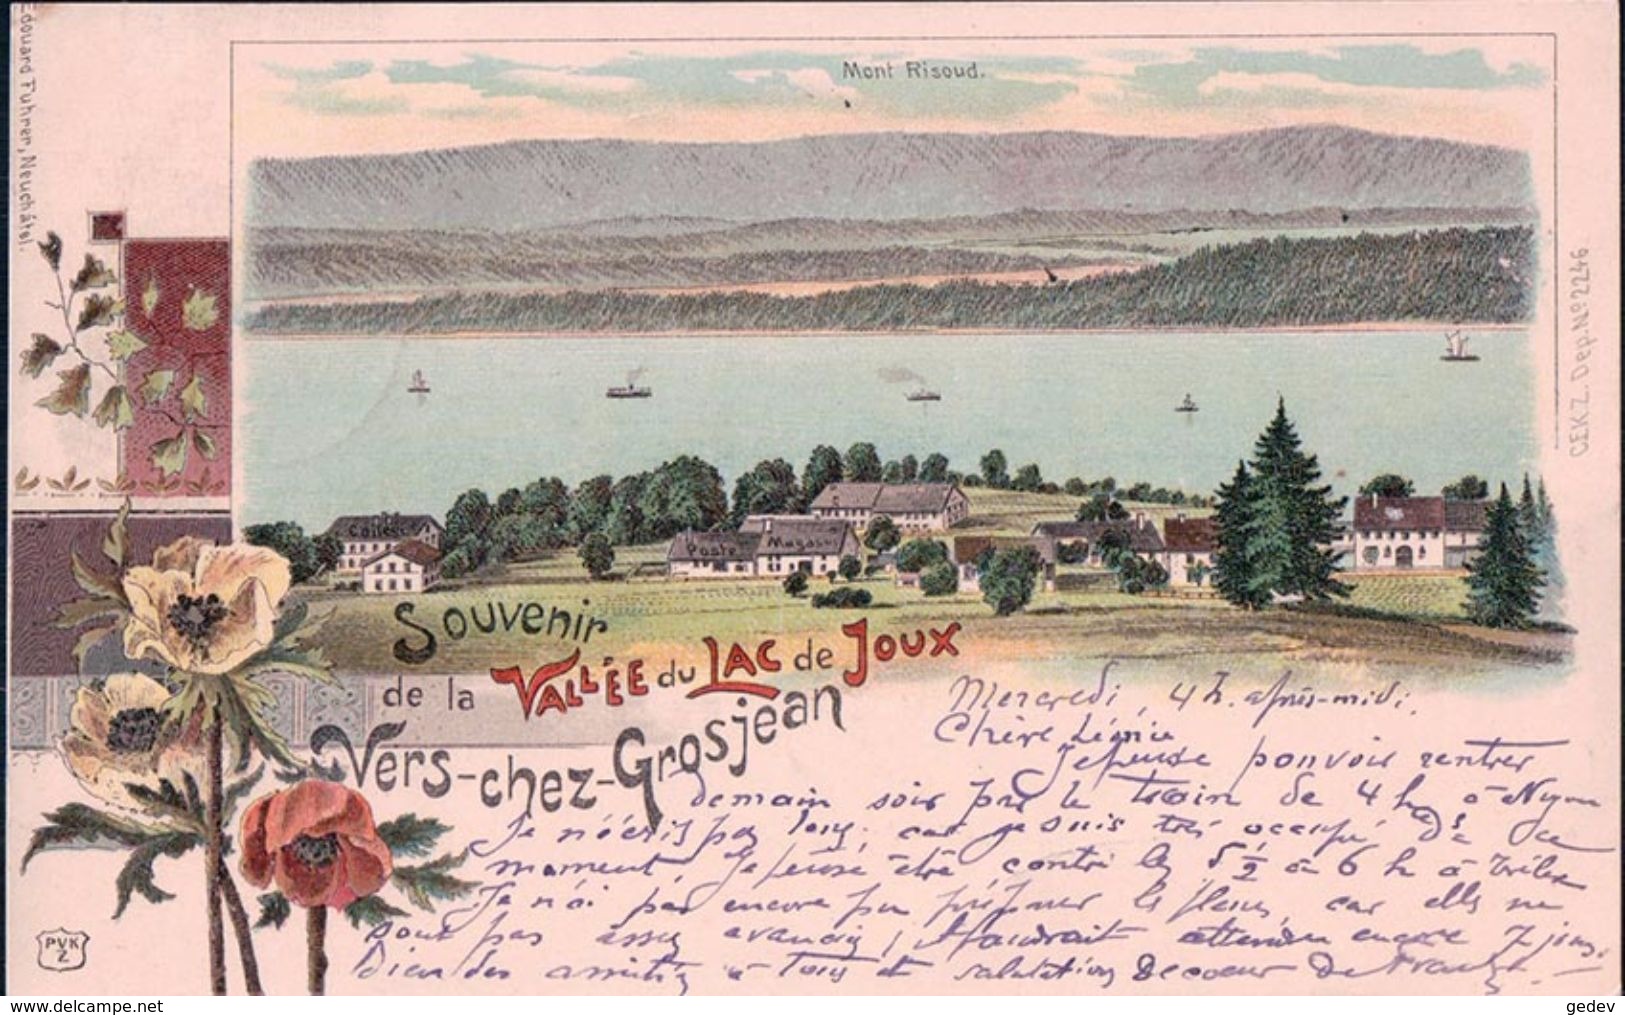 Edouard Fuhrer, Neuchâtel.
Mont Risoud.
CEKZ. Dep. No 2246
Collège
Poste Magasin
Souvenir
de la VALLÉE du LAC de JOUX
Vers-chez-Grosjean
Mercredi, 4 h. après-midi.
Chère
Je pense pouvoir rentrer
demain soir par le train de 4 h à Nyon
Je n'écris pas long, car je suis très occupé ce
moment, Je pense être contre les 5 1/2 à 6 h à
Je n'ai pas encore pu préparer les fleurs, car elles ne
sont pas assez, il faudrait attendre encore 7 jours.
Bien des amitiés à tous et salutations de coeur de
PVK
Z
gedev